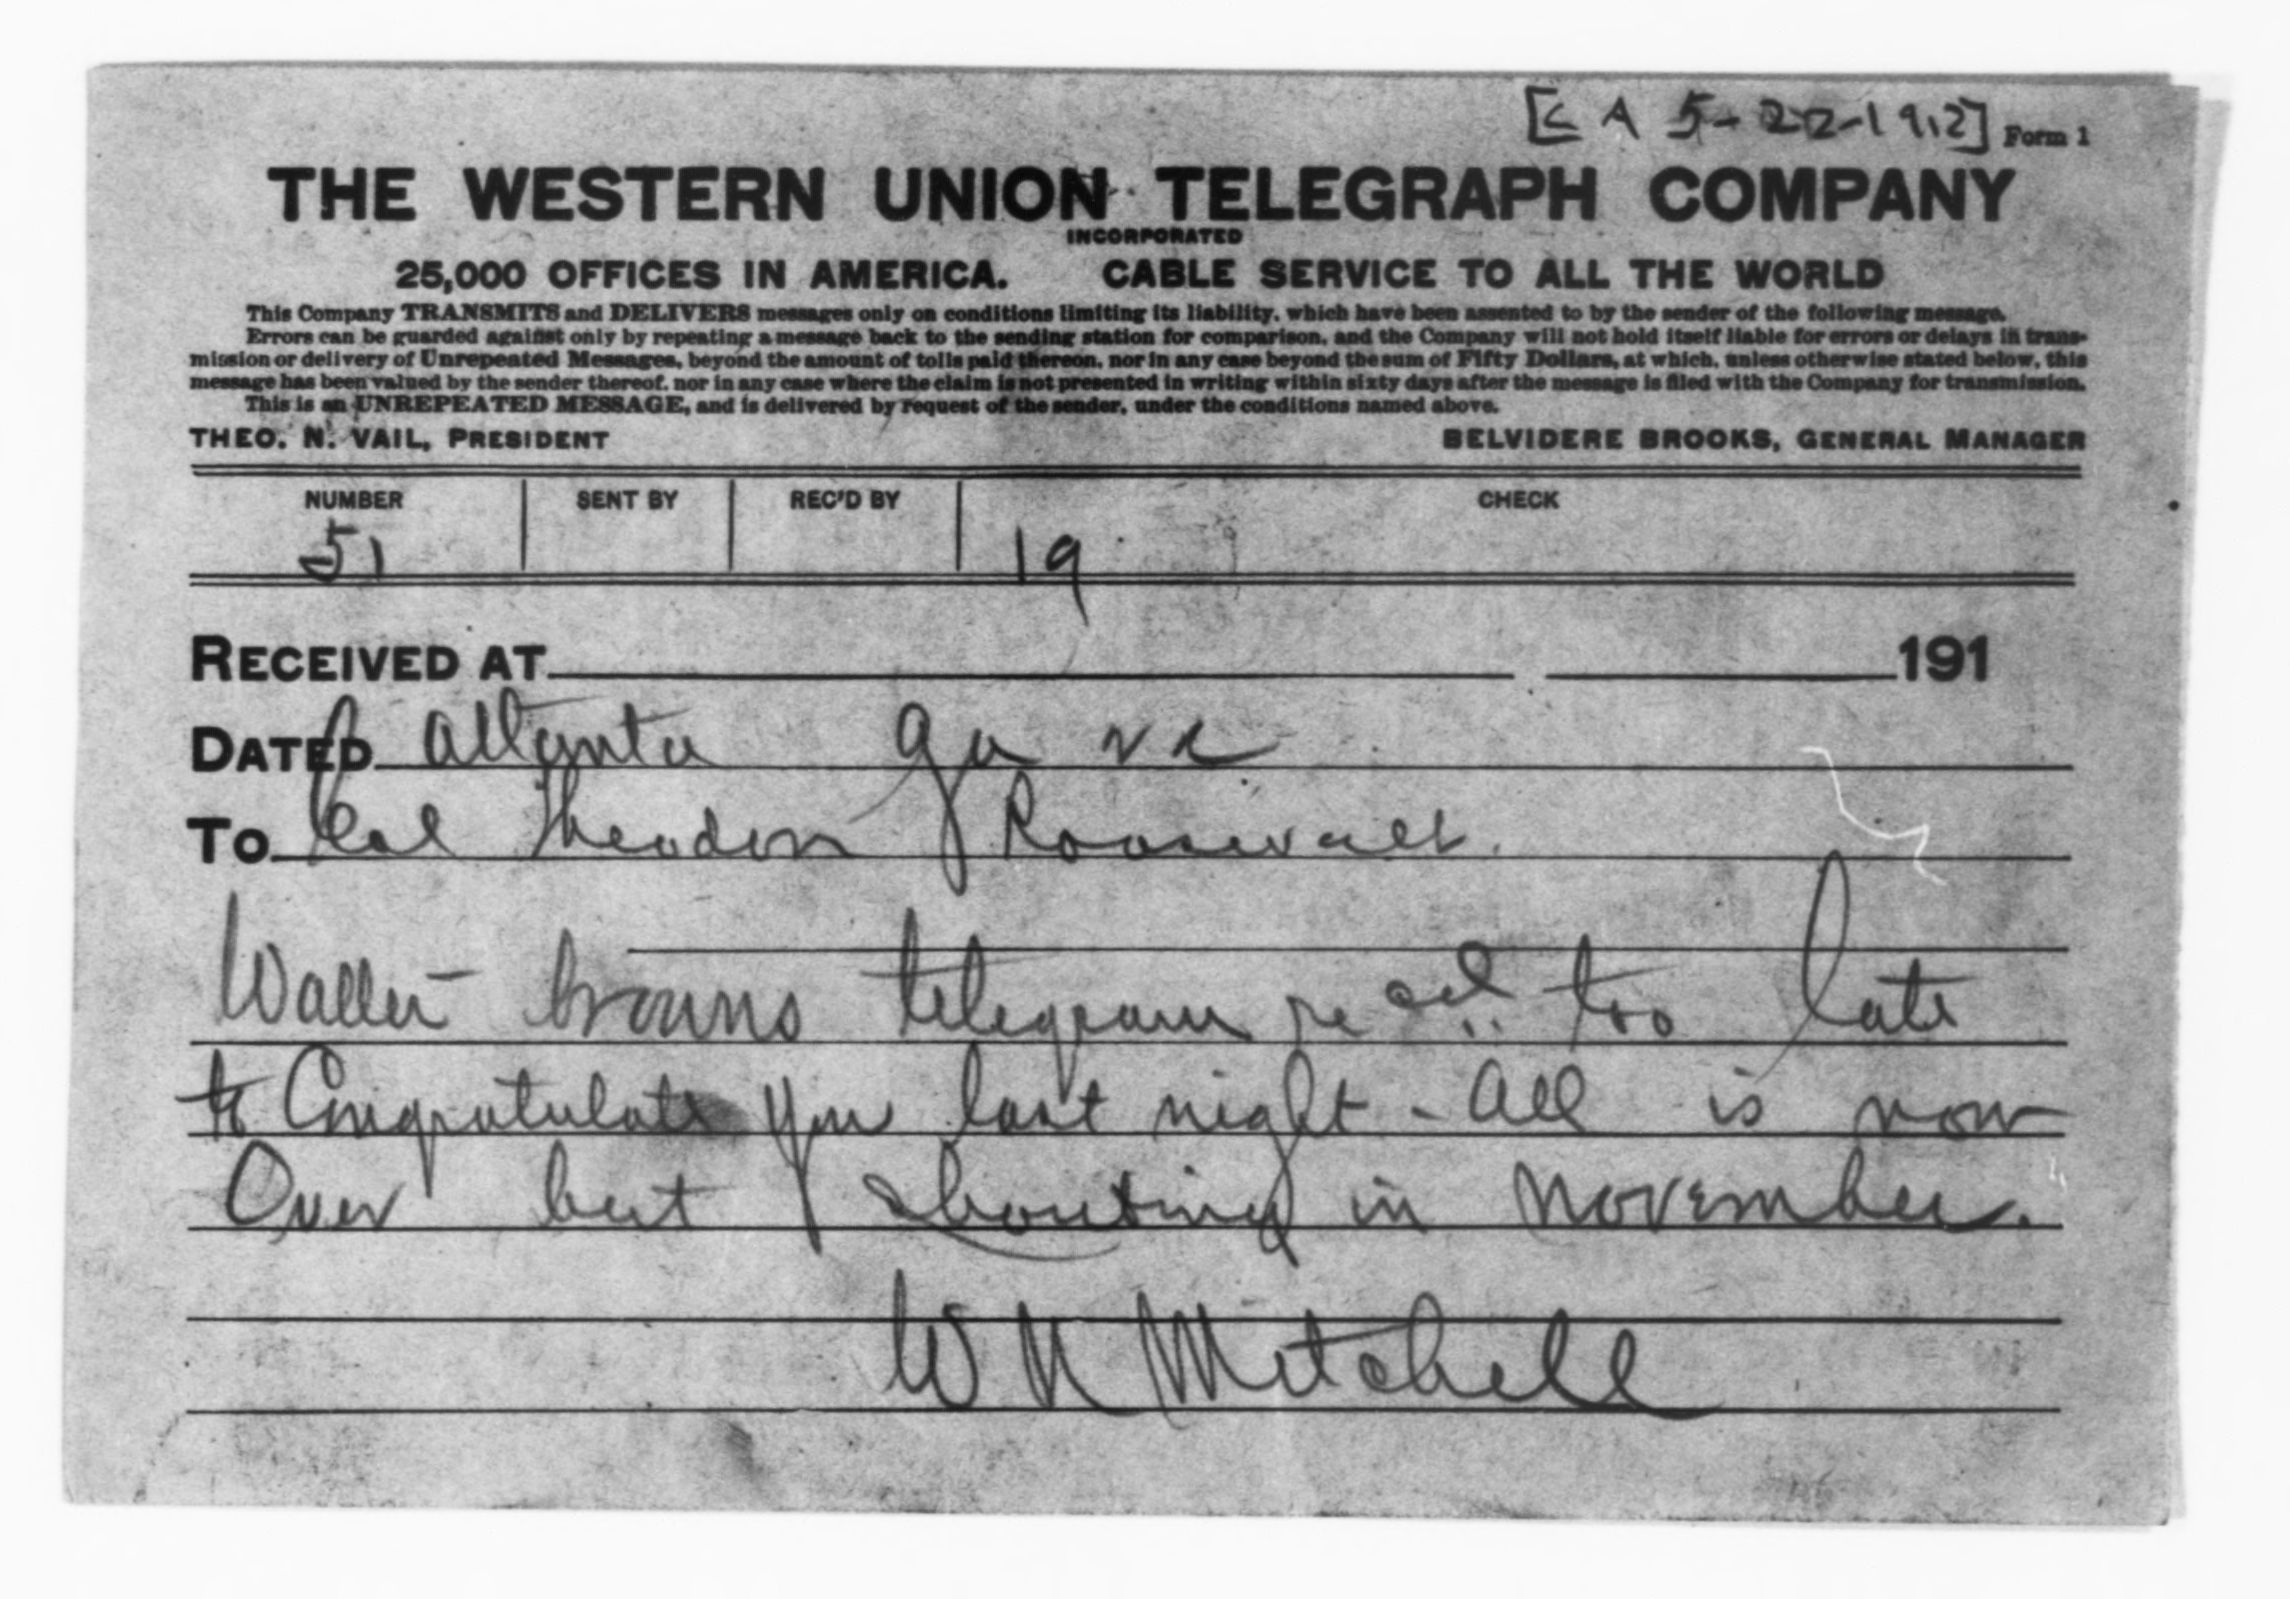 [C A 5-22-1912] Form 1
THE WESTERN UNION TELEGRAPH COMPANY
INCORPORATED
25,000 OFFICES IN AMERICA. CABLE SERVICE TO ALL THE WORLD
This Company TRANSMITS and DELIVERS messages only on conditions limiting its liability, which have been assented to by the sender of the following message.
Errors can be guarded against only by repeating a message back to the sending station for comparison, and the Company will not hold itself liable for errors or delays in trans-
mission or delivery of Unrepeated Messages, beyond the amount of tolls paid thereon, nor in any case beyond the sum of Fifty Dollars, at which, unless otherwise stated below, this
message has been valued by the sender thereof, nor in any case where the claim is not presented in writing within sixty days after the message is filed with the Company for transmission.
This is an UNREPEATED MESSAGE, and is delivered by request of the sender, under the conditions named above.
THEO. N. VAIL, PRESIDENT BELVIDERE BROOKS, GENERAL MANAGER
NUMBER SENT BY REC'D BY CHECK
51 19
RECEIVED AT 191
DATED Atlanta Ga
TO Col Theodore Roosevelt.
Walter browns telegram recd too late
to Congratulate you last night - all is now
Over but shouting in November.
W H Mitchell